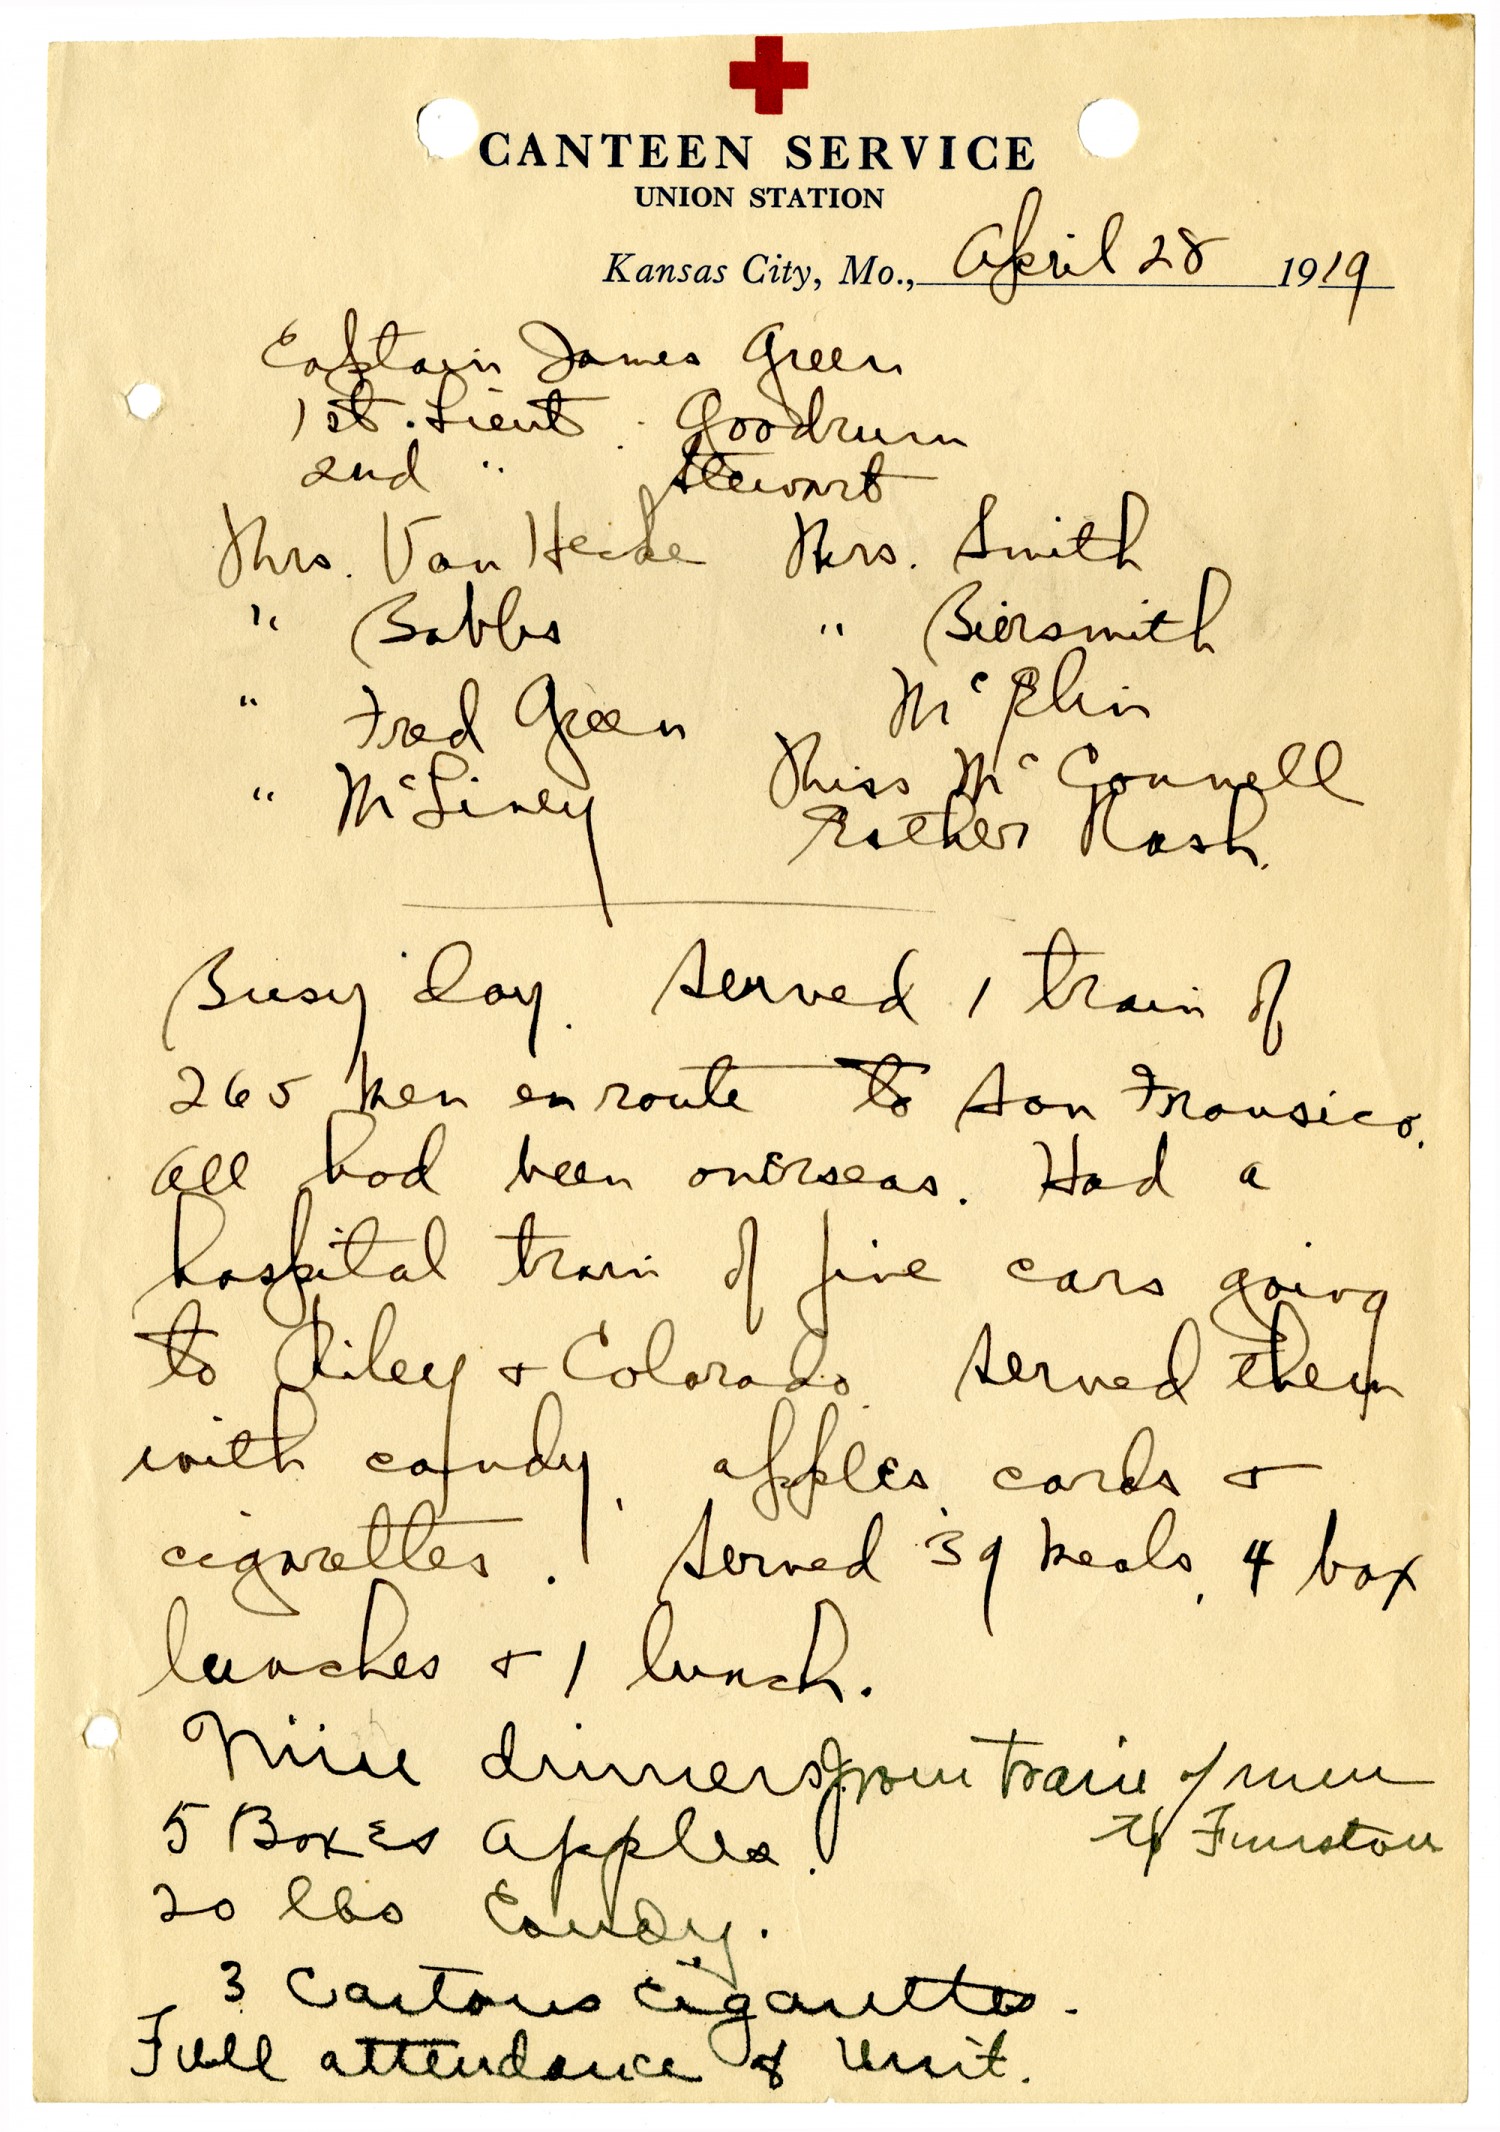 CANTEEN SERVICE
UNION STATION
Kansas City, Mo., April 28 1919
Captain James Green
1st. Lieut. Goodrum
2nd " Stewart
Mrs. Van Hecke Mrs. Smith
" Babbs " Biersmith
" Fred Green McElvin
" McLiney Miss McConnell
Esther Nash.
Busy day. Served 1 train of
265 men enroute to San Fransico.
All had been overseas. Had a
hospital train of five cars going
to Riley & Colorado. Served them
with candy, apples, cards &
cigarettes. Served 39 meals, 4 box
lunches & 1 lunch.
Nine dinners from train of men
5 Boxes apples. to Funston
20 lbs Candy.
3 Cartons Cigarettes.
Full attendance of Unit.